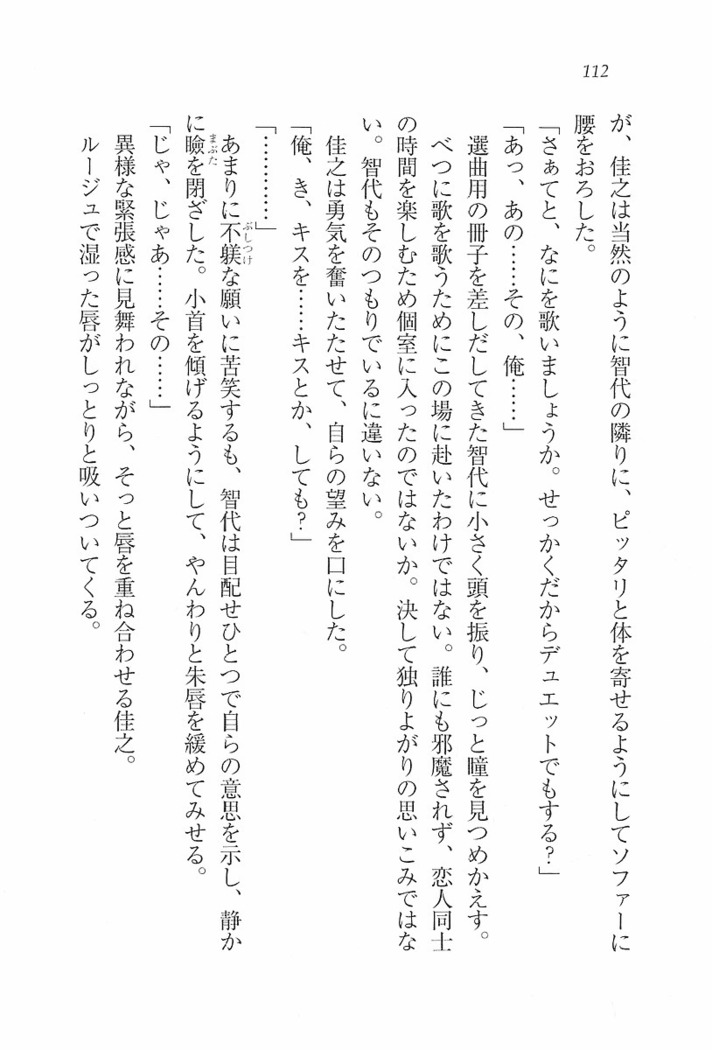 112
が、佳之は当然のように智代の隣りに、ピッタリと体を寄せるようにしてソファーに
腰をおろした。
「さぁてと、なにを歌いましょうか。せっかくだからデュエットでもする?」
「あっ、あの……その、俺……」
選曲用の冊子を差しだしてきた智代に小さく頭を振り、じっと瞳を見つめかえす。
べつに歌を歌うためにこの場に赴いたわけではない。誰にも邪魔されず、恋人同士
の時間を楽しむため個室に入ったのではないか。決して独りよがりの思いこみではな
い。智代もそのつもりでいるに違いない。
佳之は勇気を奮いたたせて、自らの望みを口にした。
「俺、き、キスを……キスとか、しても?」
「…………」
あまりに不躾な願いに苦笑するも、智代は目配せひとつで自らの意思を示し、静か
に瞼を閉ざした。小首を傾げるようにして、やんわりと朱唇を緩めてみせる。
「じゃ、じゃあ……その……」
異様な緊張感に見舞われながら、そっと唇を重ね合わせる佳之。
ルージュで湿った唇がしっとりと吸いついてくる。